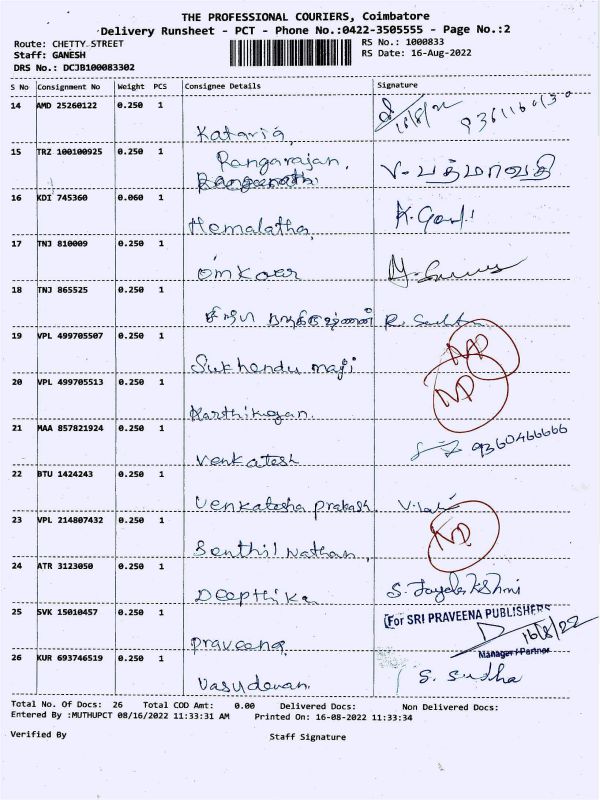 THE PROFESSIONAL COURIERS, Coimbatore
Delivery Runsheet - PCT - Phone No.:0422-3505555 - Page No.:2
Route: CHETTY STREET RS No.: 1000833
Staff: GANESH RS Date: 16-Aug-2022
DRS No.: DCJB100083302
S No Consignment No Weight PCS Consignee Details Signature
14 AMD 25260122 0.250 1
Kataria, 16/8/22
15 TRZ 100100925 0.250 1 Rangarajan. V- பத்மாவதி
16 KDI 745360 0.060 1
Hemalatha,
17 TNJ 810009 0.250 1
Omkaer
18 TNJ 865525 0.250 1
R.
19 VPL 499705507 0.250 1 ND
Sukhendu maji
20 VPL 499705513 0.250 1 ND
Karthikeyan.
21 MAA 857821924 0.250 1 9360466666
Venkatesh
22 BTU 1424243 0.250 1
Venkatesha prakash
23 VPL 214807432 0.250 1 ND
Senthil Nathan,
24 ATR 3123050 0.250 1
Deepthika S. Jayalakshmi
25 SVK 15010457 0.250 1 For SRI PRAVEENA PUBLISHERS
16/8/22
Praveena, Manager / Partner
26 KUR 693746519 0.250 1 S. Sudha
Vasudevan.
Total No. Of Docs: 26 Total COD Amt: 0.00 Delivered Docs: Non Delivered Docs:
Entered By :MUTHUPCT 08/16/2022 11:33:31 AM Printed On: 16-08-2022 11:33:34
Verified By Staff Signature